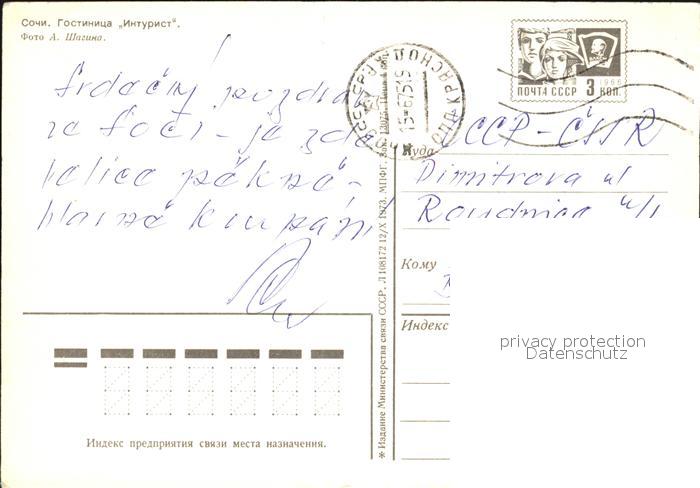 Сочи. Гостиница „Интурист“.
Фото А. Шагина.
Srdečný pozdrav
ze Soči - je zde
velice pěkně -
hlavně koupání
ПОЧТА СССР 1966 3 коп.
СССР
КРАСНОД
Куда СССР - ČSSR
Dimitrova ul
Roudnice n/L
Кому
Индекс
privacy protection
Datenschutz
Индекс предприятия связи места назначения.
✳ Издание Министерства связи СССР. Л 108172 12/X 1973. МПФГ. Зак. 13075. Цена 4 коп.